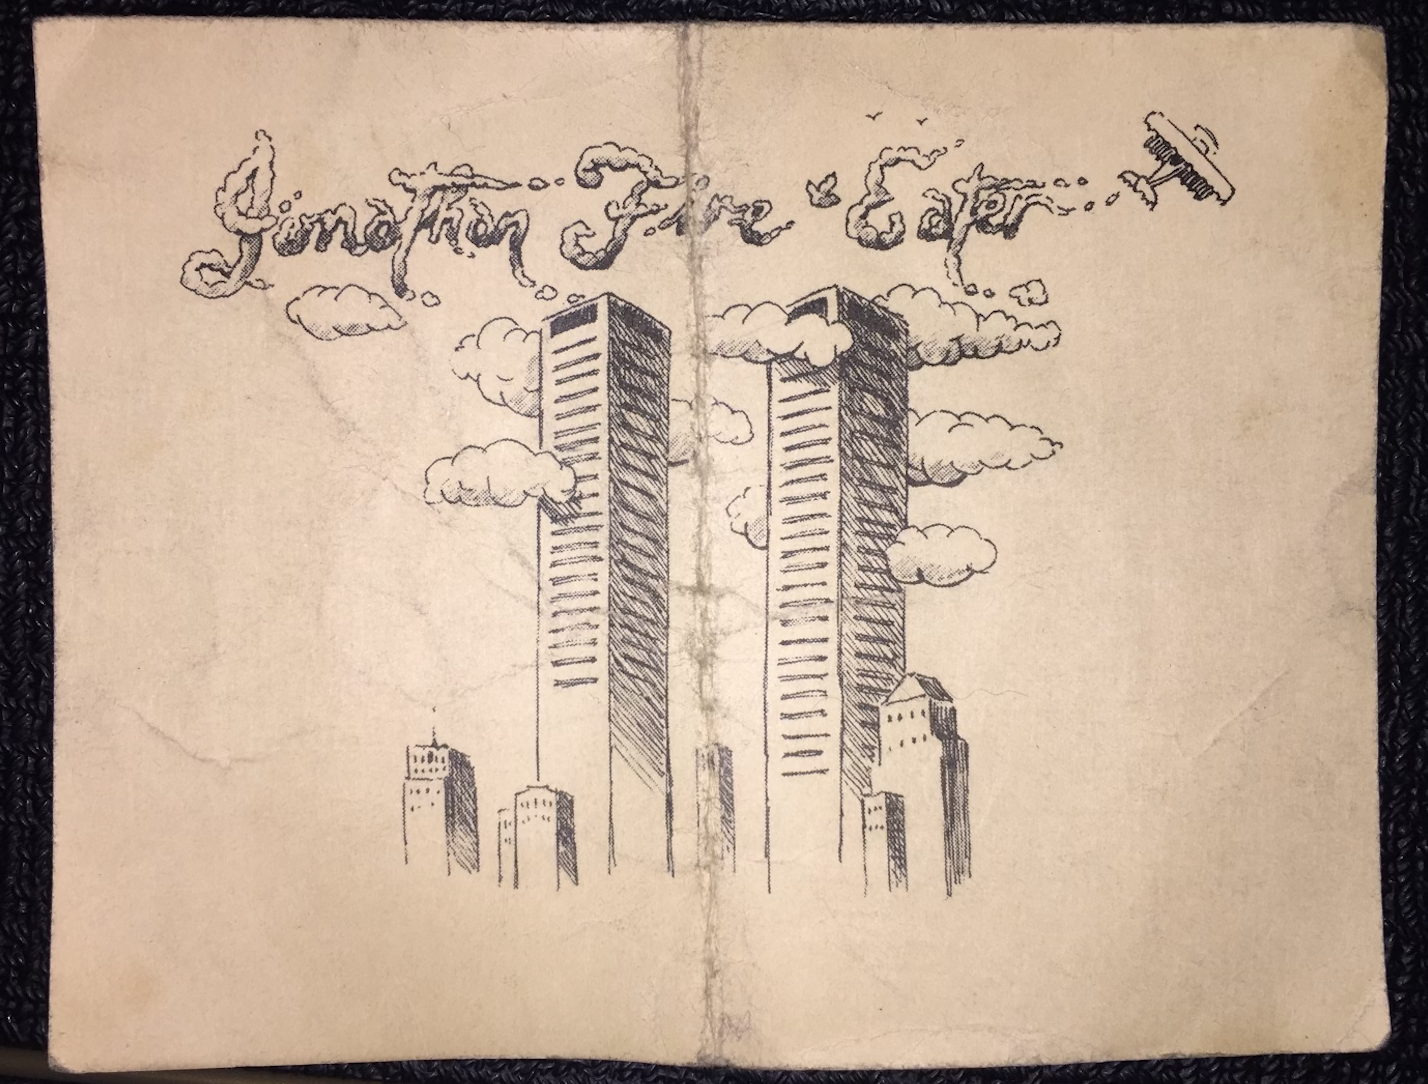 Jonathan Fire*Eater